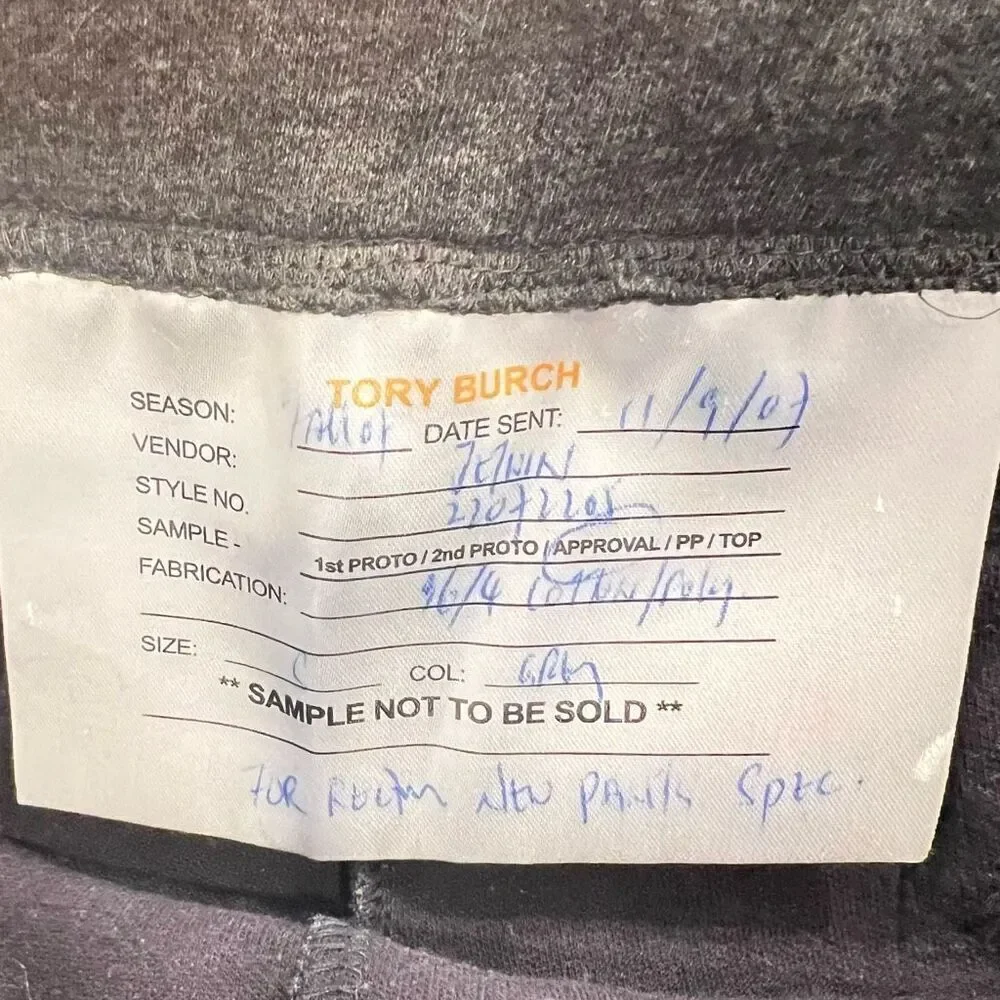 TORY BURCH
SEASON: DATE SENT: 11/9/07
VENDOR:
STYLE NO. 22072205
SAMPLE - 1st PROTO / 2nd PROTO / APPROVAL / PP / TOP
FABRICATION: 96/4 COTTON/Poly.
SIZE: COL: GREY
** SAMPLE NOT TO BE SOLD **
FOR NEW PANTS SPEC.